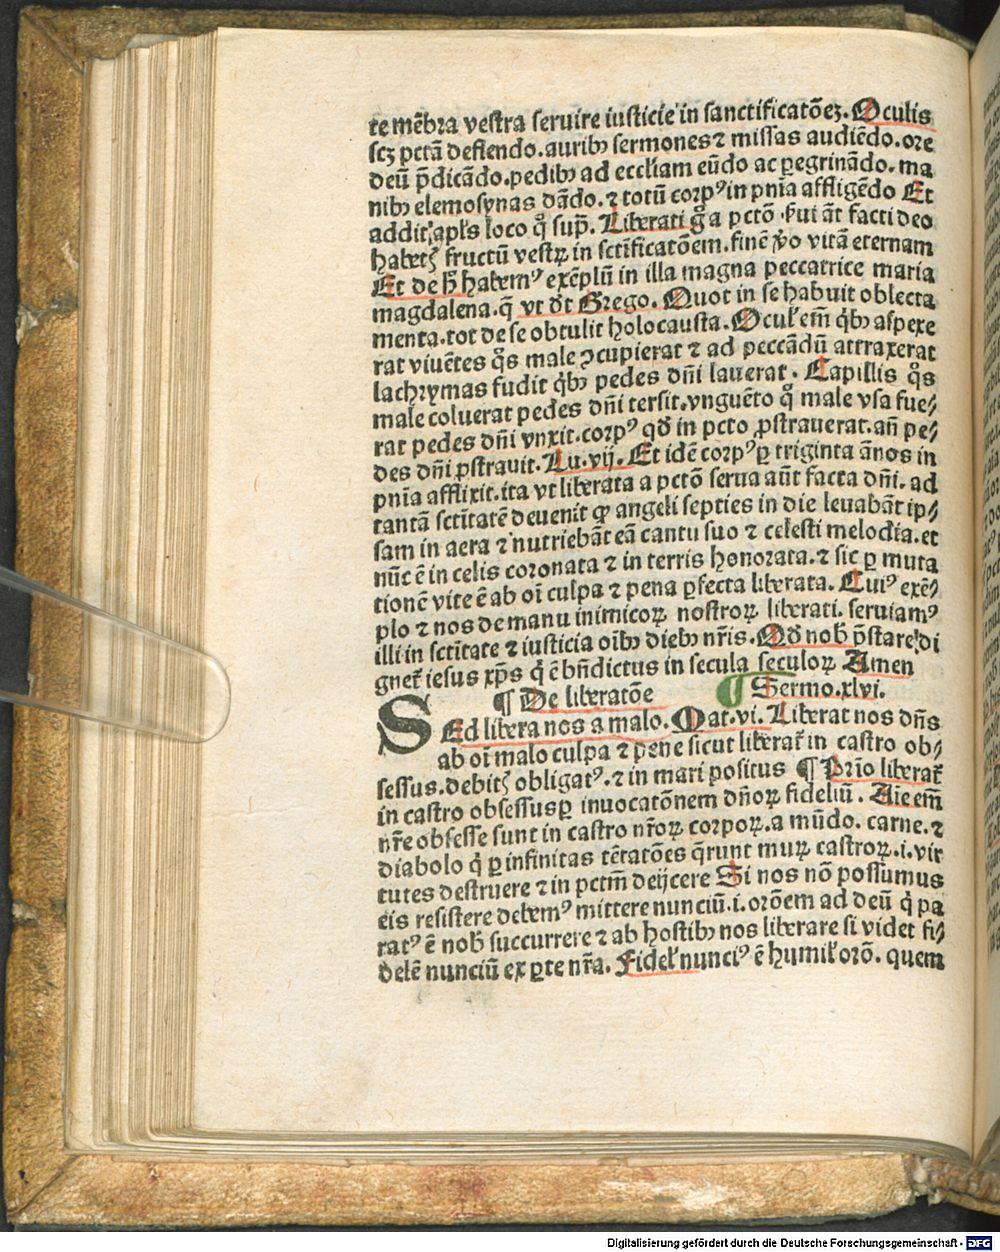 te mēbra vestra seruire iusticie in sanctificatōeꝫ. Oculis
scꝫ pctā deflendo. auribꝰ sermones ⁊ missas audiēdo. ore
deū p̄dicādo. pedibꝰ ad eccłiam eūdo ac ꝑegrinādo. ma
nibꝰ elemosynas dādo. ⁊ totū corpꝰ in pnīa affligēdo Et
addit apłs loco qͦ sup̄. Liberati gͦ a pctō ẜui āt facti deo
habetꝭ fructū vestrꝝ in sctīficatōem. finē ꝟo vitā eternam
Et de hͦ habemꝰ exēplū in illa magna peccatrice maria
magdalena. q̄ vt dt Grego. Quot in se habuit oblecta
menta. tot de se obtulit holocausta. Ocuł em̄ qͥbꝰ aspexe
rat viuētes qͦs male ꝯcupierat ⁊ ad peccādū attraxerat
lachrymas fudit qͥbꝰ pedes dn̄i lauerat. Capillis qͦs
male coluerat pedes dn̄i tersit. vnguēto qͦ male vsa fue/
rat pedes dn̄i vnxit. corpꝰ qd in pcto ꝓstrauerat. an̄ pe/
des dn̄i ꝓstrauit. Lu. vij. Et idē corpꝰ ꝑ triginta ānos in
pnīa afflixit. ita vt liberata a pctō serua aūt facta dn̄i. ad
tantā sctītatē deuenit ꝙ angeli septies in die leuabāt ip/
sam in aera ⁊ nutriebāt eā cantu suo ⁊ celesti melodia. et
nūc ē in celis coronata ⁊ in terris honorata. ⁊ sic ꝑ muta
tionē vite ē ab oī culpa ⁊ pena ꝑfecta liberata. Cuiꝰ exē/
plo ⁊ nos de manu inimicoꝝ nostroꝝ liberati. seruiamꝰ
illi in sctītate ⁊ iusticia oībꝰ diebꝰ nr̄is. Qd nob̄ p̄stare di
gnet iesus xp̄s qͥ ē bn̄dictus in secula seculoꝝ Amen
¶ De liberatōe ¶ Sermo. xlvi.
SEd libera nos a malo. Mat. vi. Liberat nos dn̄s
ab oī malo culpa ⁊ pene sicut liberat in castro ob/
sessus. debitꝭ obligatꝰ. ⁊ in mari positus ¶ Prīo liberat
in castro obsessus ꝑ inuocatōnem dn̄oꝝ fideliū. Aīe em̄
nr̄e obsesse sunt in castro nr̄oꝝ corpoꝝ. a mūdo. carne. ⁊
diabolo qͥ ꝑ infinitas tētatōes q̄runt muꝝ castroꝝ. i. vir
tutes destruere ⁊ in pctm̄ deijcere Si nos nō possumus
eis resistere debemꝰ mittere nunciū. i. orōem ad deū qͥ pa
ratꝰ ē nob̄ succurrere ⁊ ab hostibꝰ nos liberare si videt fi/
delē nunciū ex ꝑte nr̄a. Fideł nunciꝰ ē humił orō. quem
Digitalisierung gefördert durch die Deutsche Forschungsgemeinschaft - DFG